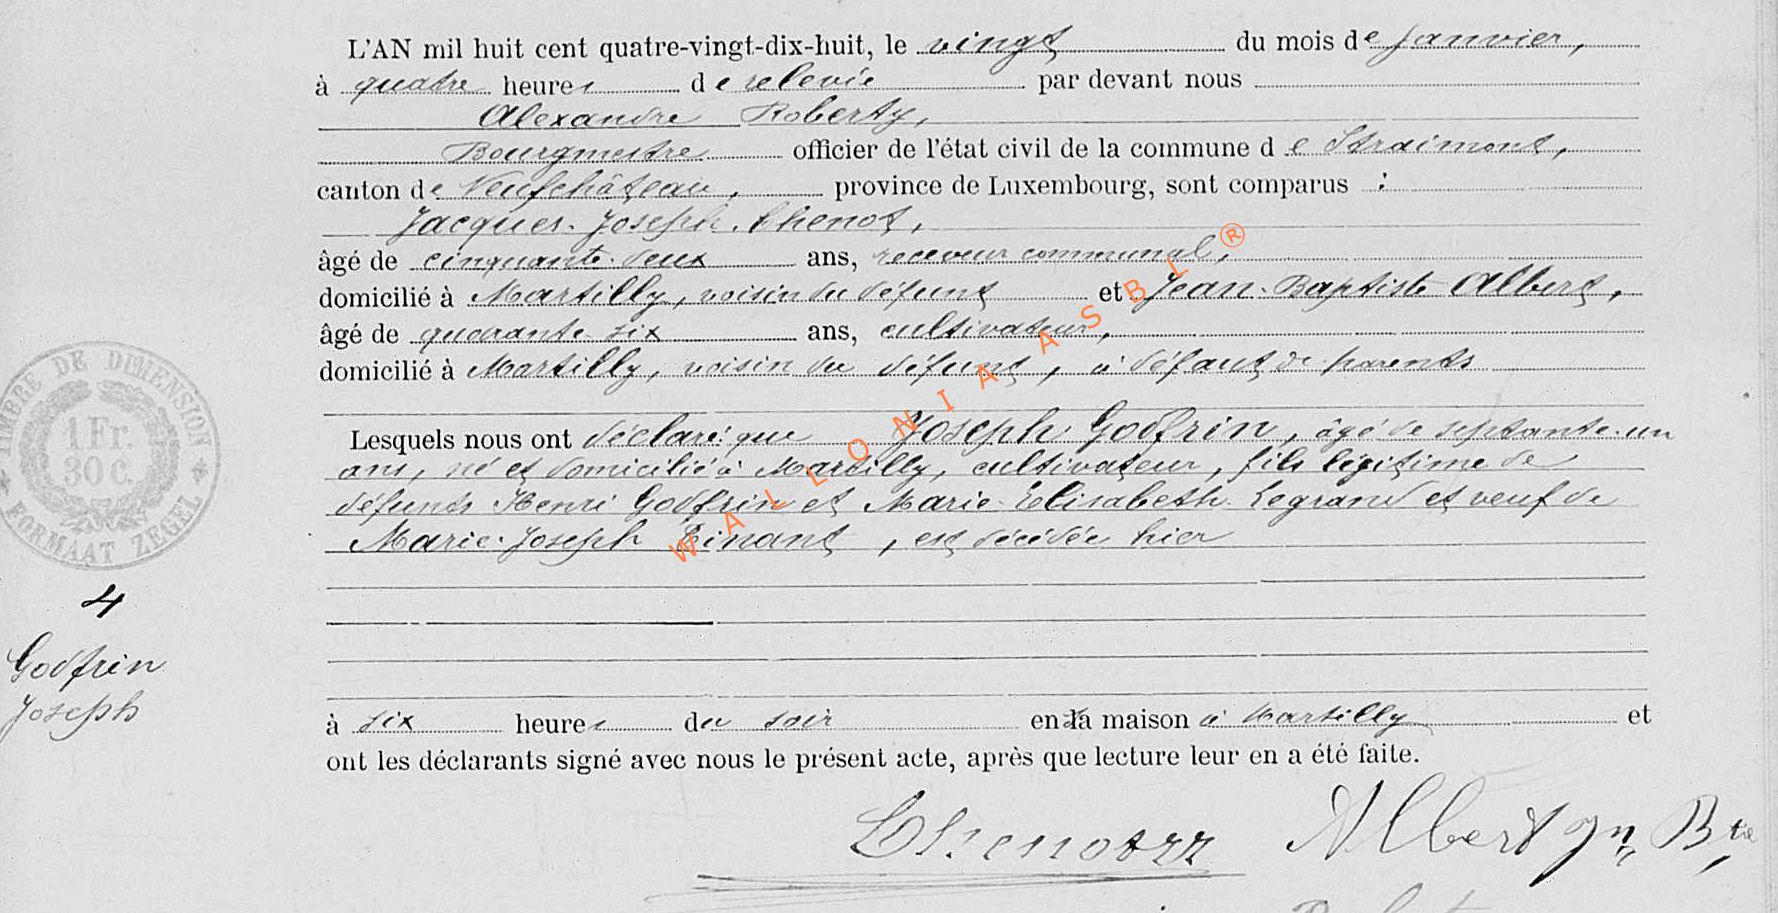 L'AN mil huit cent quatre-vingt-dix-huit, le vingt du mois de Janvier,
à quatre heures de relevée par devant nous
Alexandre Roberty,
Bourgmestre officier de l'état civil de la commune de Straimont,
canton de Neufchâteau, province de Luxembourg, sont comparus :
Jacques-Joseph Thenot,
âgé de cinquante-deux ans, receveur communal,
domicilié à Martilly, voisin du défunt et Jean-Baptiste Albert,
âgé de quarante-six ans, cultivateur,
domicilié à Martilly, voisin du défunt, à défaut de parents
Lesquels nous ont déclaré que Joseph Godfrin, âgé de septante-un
ans, né et domicilié à Martilly, cultivateur, fils légitime de
défunts Henri Godfrin et Marie-Elisabeth Legrand et veuf de
Marie-Joseph Pinant, est décédée hier
à six heures du soir en sa maison à Martilly et
ont les déclarants signé avec nous le présent acte, après que lecture leur en a été faite.
TIMBRE DE DIMENSION
1 Fr.
30 C.
FORMAAT ZEGEL
4
Godfrin
Joseph
Albert Jn Bte
WALLONIA ASBL®